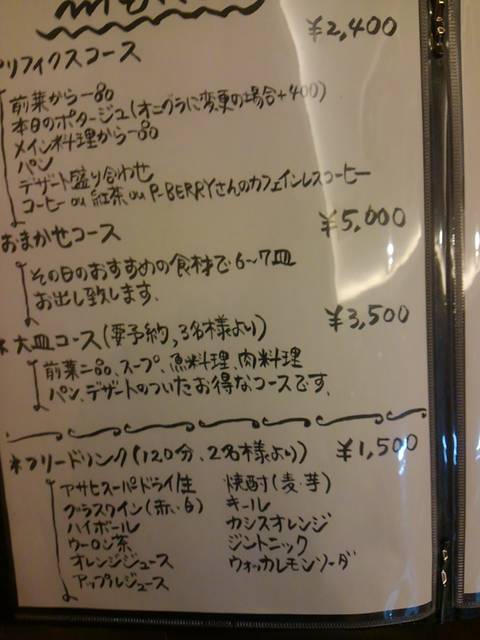 ¥2,400
プリフィクスコース
前菜から一品
本日のポタージュ(オニグラに変更の場合+400)
メイン料理から一品
パン
デザート盛り合わせ
コーヒー ou 紅茶 ou P-BERRYさんのカフェインレスコーヒー
¥5,000
おまかせコース
その日のおすすめの食材で6~7皿
お出し致します.
¥3,500
* 大皿コース(要予約,3名様より)
前菜二品、スープ、魚料理、肉料理
パン、デザートのついたお得なコースです.
¥1,500
*フリードリンク(120分、2名様より)
アサヒスーパードライ/生 焼酎(麦・芋)
グラスワイン(赤・白) キール
ハイボール カシスオレンジ
ウーロン茶 ジントニック
オレンジジュース ウォッカレモンソーダ
アップルジュース